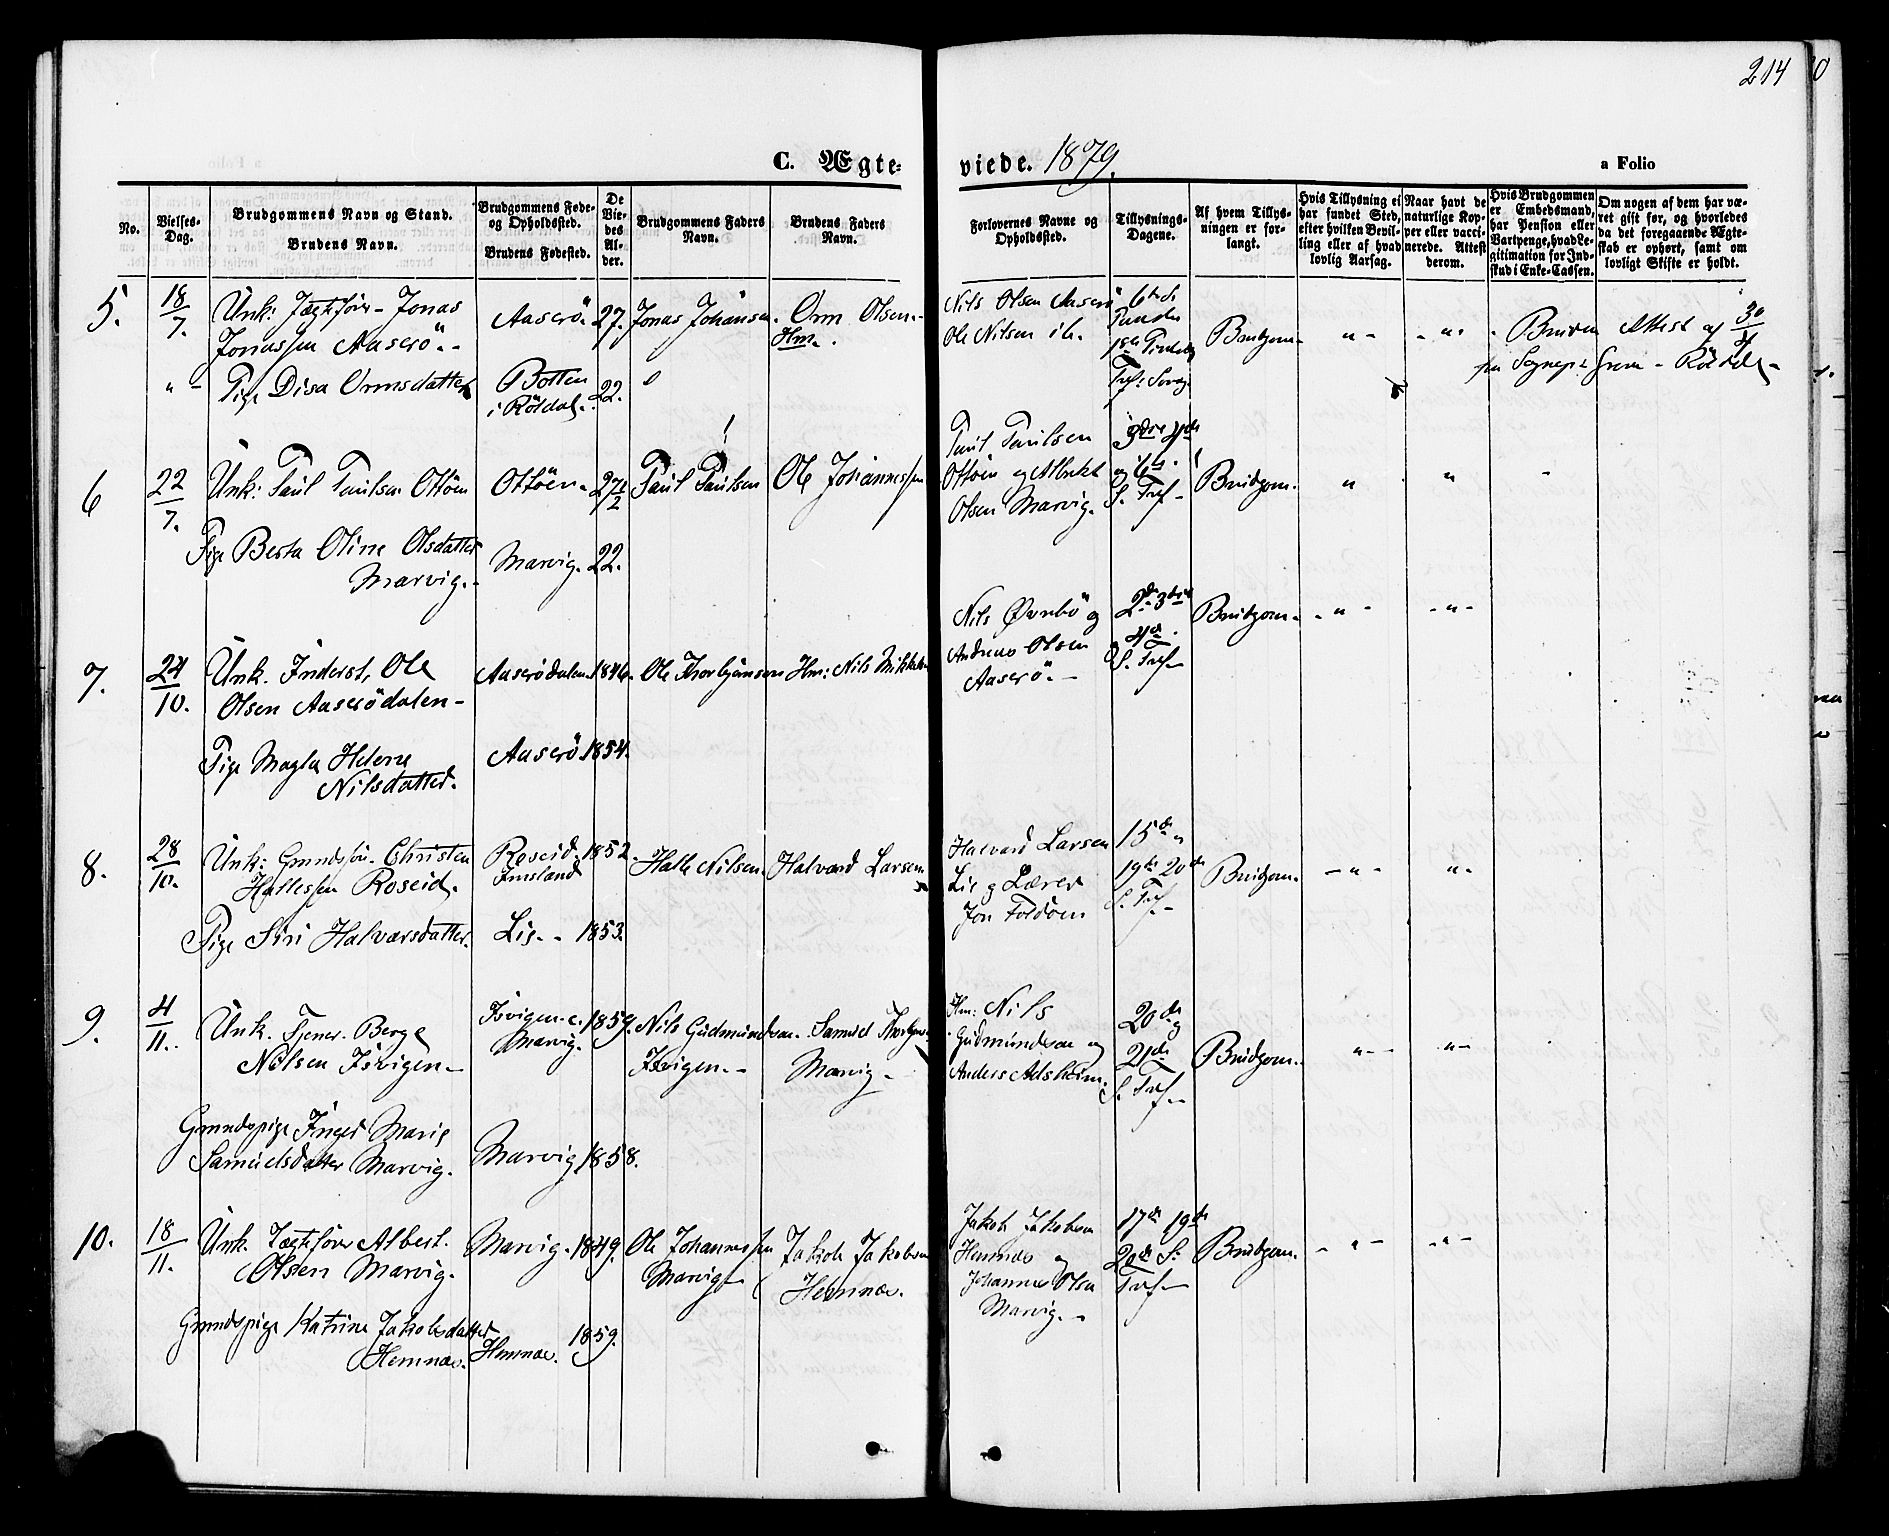 214
C. Ægte-
viede. 1879.
a Folio
No.
Vielses-
Dag.
Brudgommens Navn og Stand.
Brudens Navn.
Brudgommens Føde-
og Opholdssted.
Brudens Fødested.
De
Vie-
des
Al-
der.
Brudgommens Faders
Navn.
Brudens Faders
Navn.
Forlovernes Navne og
Opholdssted.
Tillysnings-
Dagene.
Af hvem Tillys-
ningen er for-
langt.
Hvis Tillysning ei
har fundet Sted,
efter hvilken Bevil-
ling eller af hvad
lovlig Aarsag.
Naar havt de
naturlige Kop-
per eller vacci-
nerede. Attest
derom.
Hvis Brudgommen
er Embedsmand,
har Pension eller
Vartpenge, hvad Le-
gitimation for Ind-
skud i Enke-Cassen.
Om nogen af dem har væ-
ret gift før, og hvorledes
da det foregaaende Ægte-
skab er ophørt, samt om
lovligt Skifte er holdt.
5.
18/7.
Unk: Jægtfører- Jonas
Jonassen Aaserö.-
" - Pige Disa Ormsdatter
Aaserö. 27.
Botten
i Röldal. 22.
Jonas Johansen.
Orm Olsen.-
Hm.
Nils Olsen Aaserö
Ole Nilsen ib.
Brudgom-
" -
- "-
Bruden Attest af 30/
fra Sognepr: - Röldal-
6
22/7.
Unk: Paul Paulsen Ottöen
Pige Berta Oline Olsdatter
Marvig.-
Ottöen- 27 1/2
Marvig. 22.
Paul Paulsen
Ole Johannessen
Paul Paulsen
Ottöen og Albrekt
Olsen Marvig.-
3die 4de
og 6te
S. Tref-
Brudgom.
"
"
-
7.
24/10.
Unk. Inderst, Ole
Olsen Aaserödalen-
Pige Magla Helene
Nilsdatter.
Aaserödalen. 1846.
Aaserö 1854.
Ole Thorbjörnsen
Hm: Nils Mikkelsen
Nils Øvrebö og
Andreas Olsen
Aaserö.-
2de 3die
4de
S. Tref-
Brudgom-
- " -
- "-
8.
28/10.
Unk: Gaardssön. Christen
Hallessen Roseid.
Pige Siri Halvarsdatter.
Roseid. 1852.
Imsland
Lie.- 1853.
Halle Nilsen.
Halvard Larsen
Halvard Larsen
Lie og Lærer
Jon Foldöen
15de
19de 20de
S. Tref.-
Brudgom.
- " -
"-
9.
4/11.
Unk. Tjener. Berge
Nilsen Isvigen-
Gaardspige Inger Marie
Samuelsdatter Marvig.
Isvigen. 1859.
Marvig.
Marvig 1858.
Nils Gudmundsen.
Isvigen.-
Samuel
Marvig-
Hm: Nils
Gudmundsen og
Anders Adsheim.
20de og
21de
S. Tref-
Brudgom.
"--
"-
10.
18/11.
Unk. Jægtfører Albert.
Olsen Marvig.
Gaardspige Katrine Jakobsdatter
Hemnæs.
Marvig. 1849.
Hemnæs. 1859.
Ole Johannessen
Marvig-
Jakob Jakobsen
Hemnæs.
Jakob Jakobsen
Hemnæs og
Johannes Olsen
Marvig.-
17de 19de
20de S:
Tref-
Brudgom.
- " -
- " -